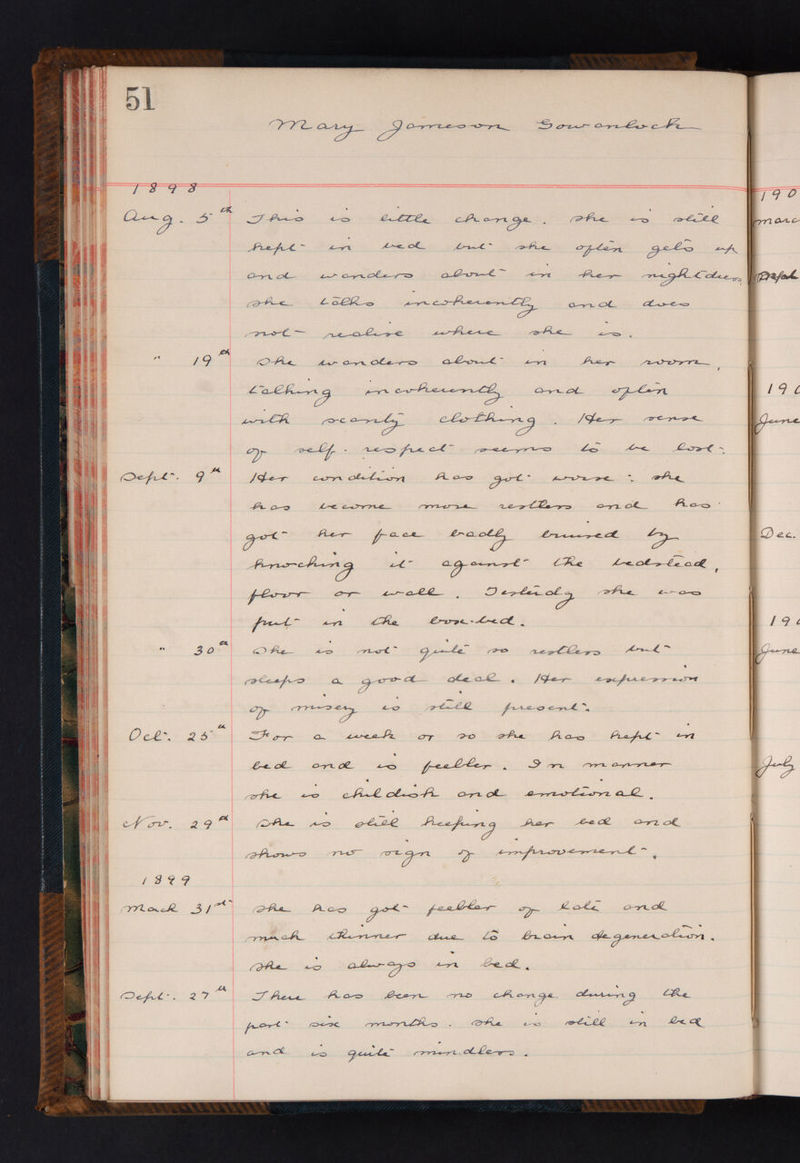 51
Mary Jameson Gowanlock
1898
Aug. 5th This is little change. She is still
kept in bed but she often gets up
and wanders about in her nightdress
she talks incoherently and does
not realise where she is.
" 19th She wanders about in her room,
talking incoherently and often
with scanty clothing. Her sense
of self-respect seems to be lost.
Sept. 9th Her condition has got worse: she
has become more restless and has
got her face badly bruised by
knocking it against the bedstead,
floor or wall. Yesterdy she was
put in the box-bed.
" 30th She is not quite so restless but
sleeps a good deal. Her expression
of misery is still present.
Oct. 25th For a week or so she has kept in
bed and is feebler. In manner
she is childish and emotional.
Nov. 29th She is still keeping her bed and
shows no sign of improvement.
1899
March 31st She has got feebler of late and
much thinner due to brain degeneration.
She is always in bed.
Sept. 27th There has been no change during the
past six months. She is still in bed
and is quite mindless.
190
Marc
Sept
190
June
Dec.
190
June
July